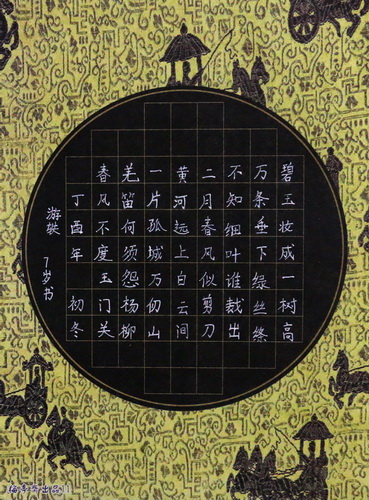 碧玉妆成一树高
万条垂下绿丝绦
不知细叶谁裁出
二月春风似剪刀
黄河远上白云间
一片孤城万仞山
羌笛何须怨杨柳
春风不度玉门关
丁酉年初冬
游 7岁书